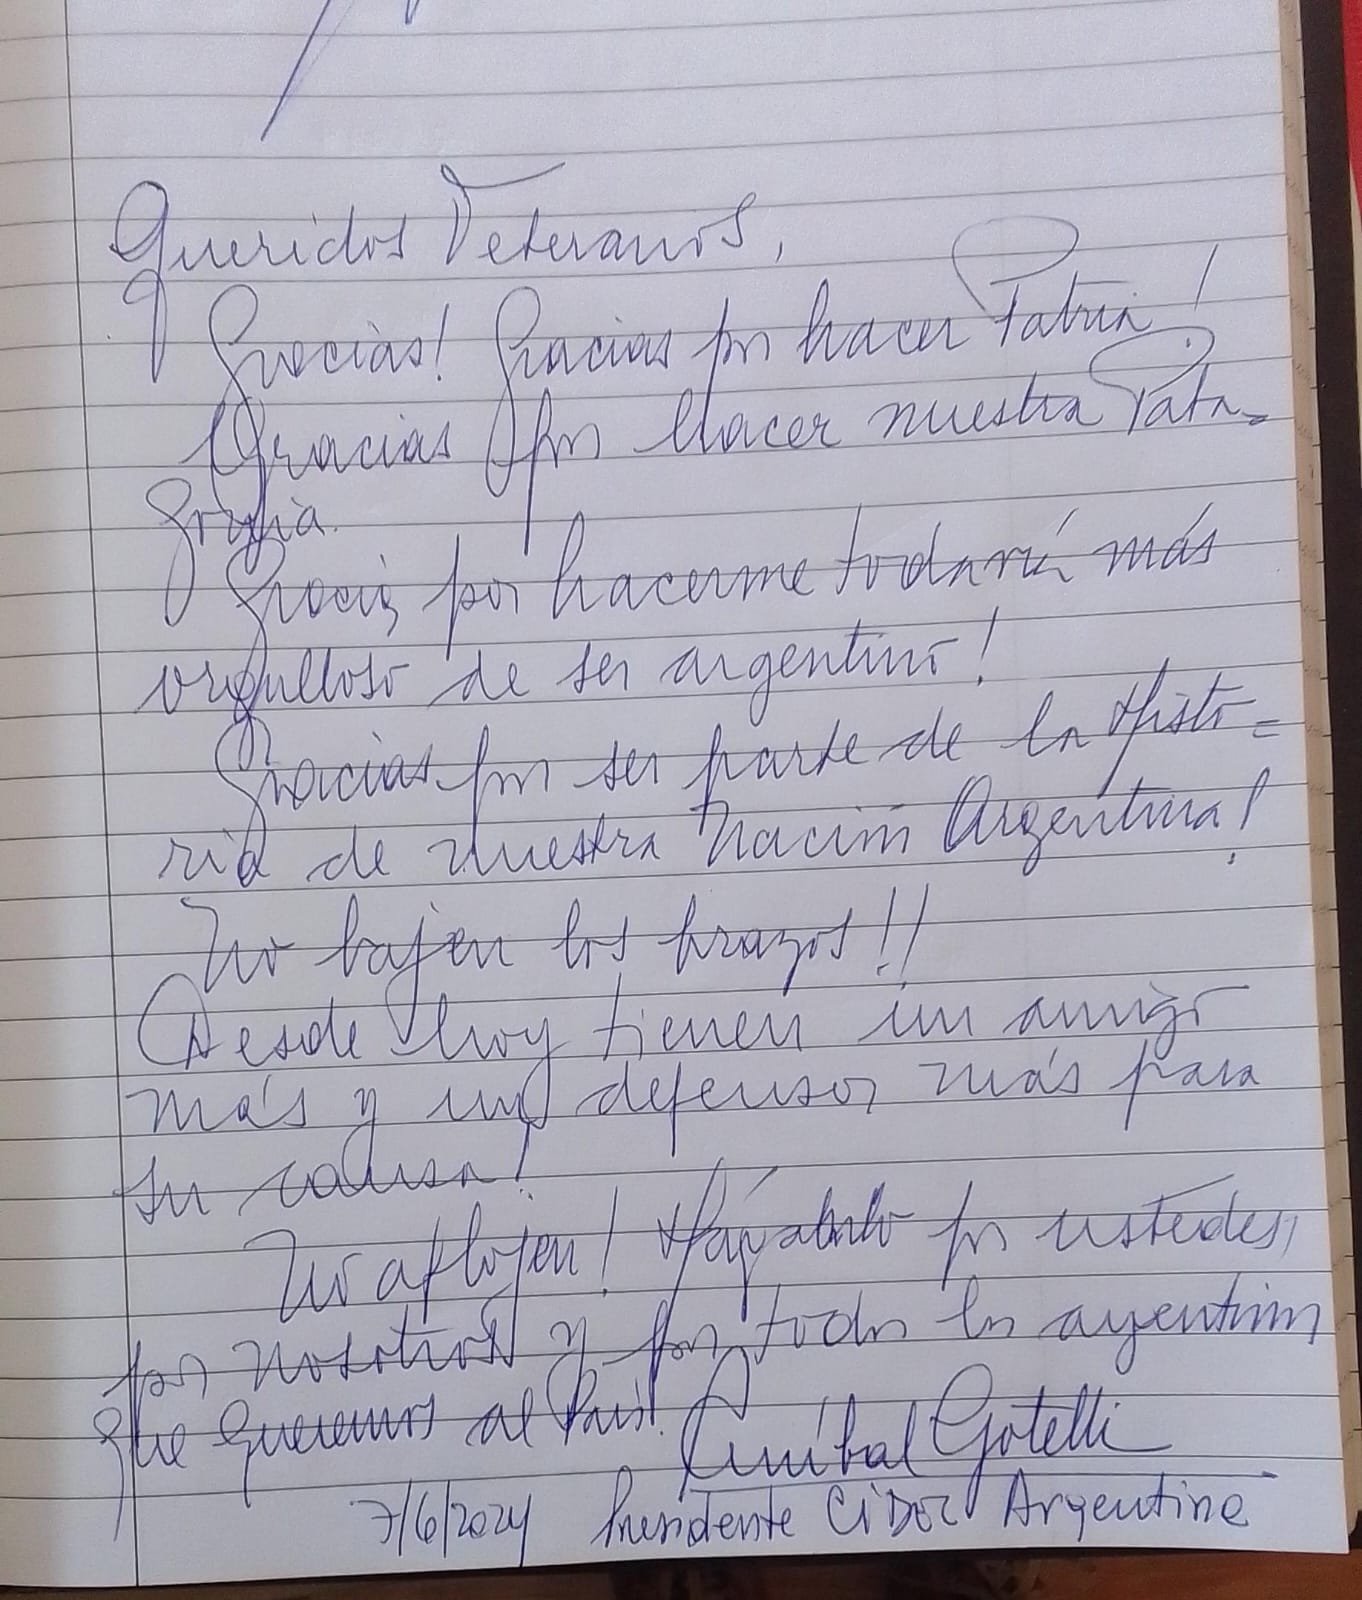 Queridos Veteranos,
Gracias! Gracias por hacer Patria!
Gracias por hacer nuestra Pata=
gonia.
Gracias por hacerme todavía más
orgulloso de ser argentino!
Gracias por ser parte de la Histo=
ria de nuestra Nación Argentina!
No bajen los brazos!!
Desde hoy tienen un amigo
más y un defensor más para
su causa!
No aflojen! Háganlo por ustedes,
por nosotros y por todos los argentinos
que queremos al País!
Aníbal Gotelli
7/6/2024 Presidente CIDOZ Argentina